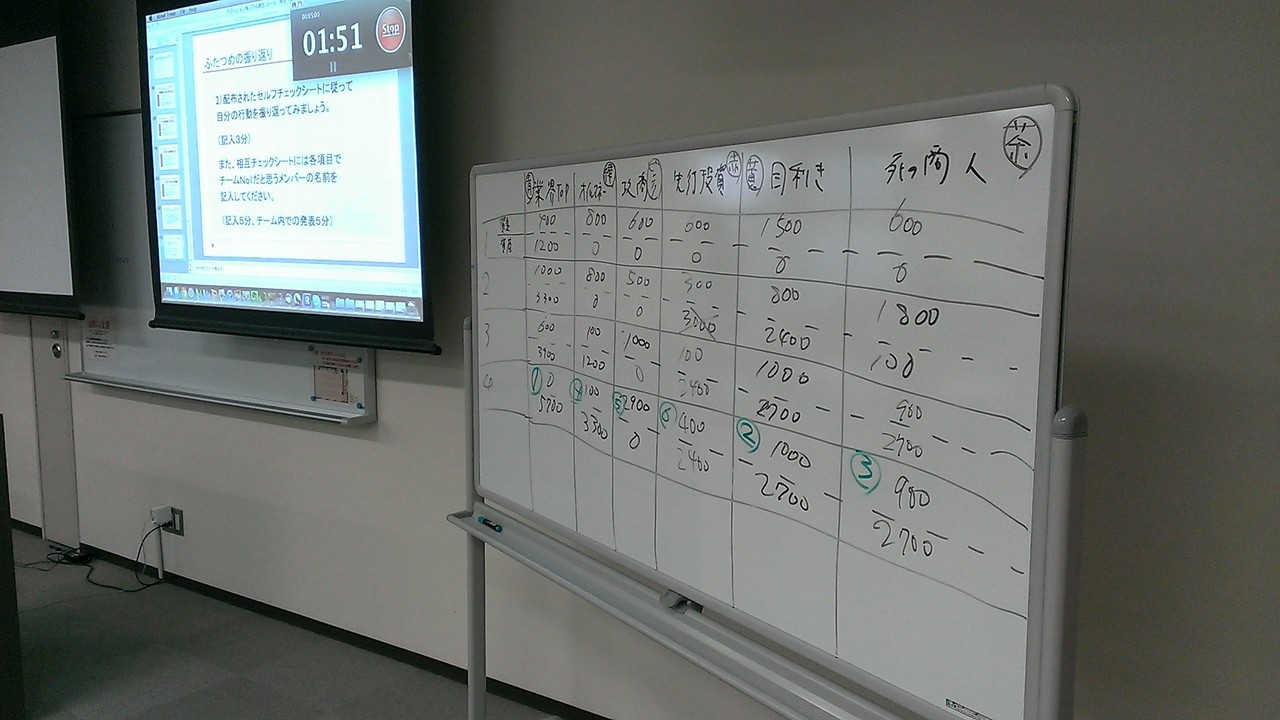 00:05:00
01:51
Stop
ふたつめの振り返り
2)配布されたセルフチェックシートに従って
自分の行動を振り返ってみましょう。
(記入3分)
また、相互チェックシートには各項目で
チームNo1だと思うメンバーの名前を
記入してください。
(記入5分、チーム内での発表5分)
業界top 先行投資 赤 目利き 死の商人 茶
1 900 800 600 600 1500 600
1200 0 0 0 0 0
2 1000 800 500 500 800 1800
3300 0 0 3000 2400 100
3 600 100 1000 100 1000 900
3900 1200 0 2400 2700 2700
① 0 100 2900 400 ② 1000 ③ 900
5700 3300 0 2400 2700 2700